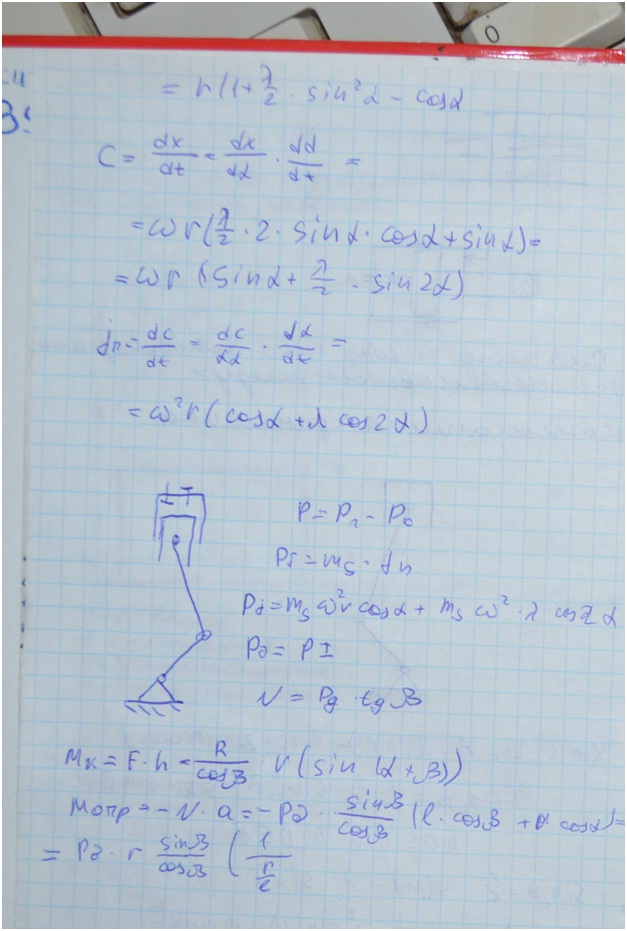 = r(1+λ/2 · sin²α - cosα
C = dx/dt = dx/dα · dα/dt =
=ωr(λ/2 · 2 · sinα · cosα+sinα)=
=ωr (sinα+ λ/2 · sin2α)
jп=dc/dt = dc/dα · dα/dt =
=ω²r(cosα+λ cos2α)
P=Pг-P₀
Pj=mₛ·jп
Pj=mₛω²r cosα + mₛω²·λ cos2α
N = Pд · tgβ
Mк=F·h= R/cosβ r(sin(α+β))
Mопр=-N·a=-Pд· sinβ/cosβ (l·cosβ +r cosα)=
= Pд·r sinβ/cosβ (1/(r/l)